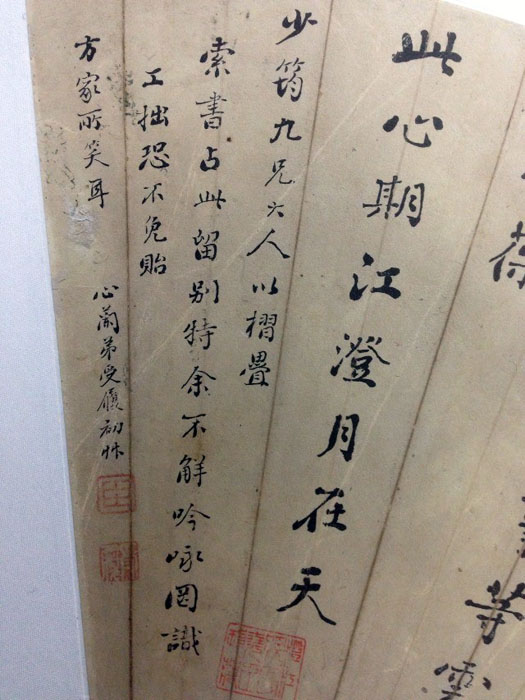 等雲
此心期江澄月在天
少筠九兄大人以摺疊
索書占此留别特余不解吟咏罔識
工拙恐不免貽
方家所笑耳
心蘭弟受履初艸